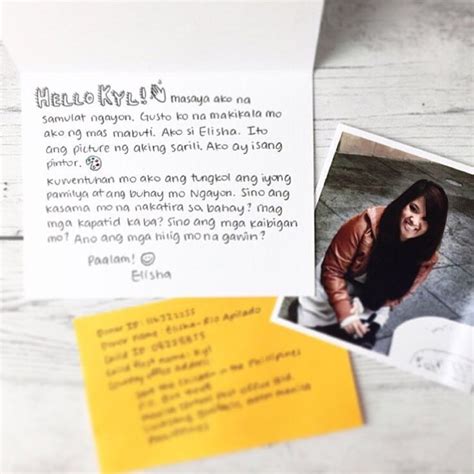 HELLO KYL! masaya ako na
samulat ngayon. Gusto ko na makikala mo
ako ng mas mabuti. Ako si Elisha. Ito
ang picture ng aking sarili. Ako ay isang
pintor.
kuwentuhan mo ako ang tungkol ang iyong
pamilya at ang buhay mo Ngayon. Sino ang
kasama mo na nakatira sa bahay? mag
mga kapatid ka ba? Sino ang mga kaibigan
mo? Ano ang mga hilig mo na gawin?
Paalam!
Elisha
Donor ID:
Donor name: Elisha-Rio Apilado
Child ID:
Child first name: Kyl
Country office address:
Save the Children in the Philippines
P.O. Box
Manila Central Post Office
Philippines